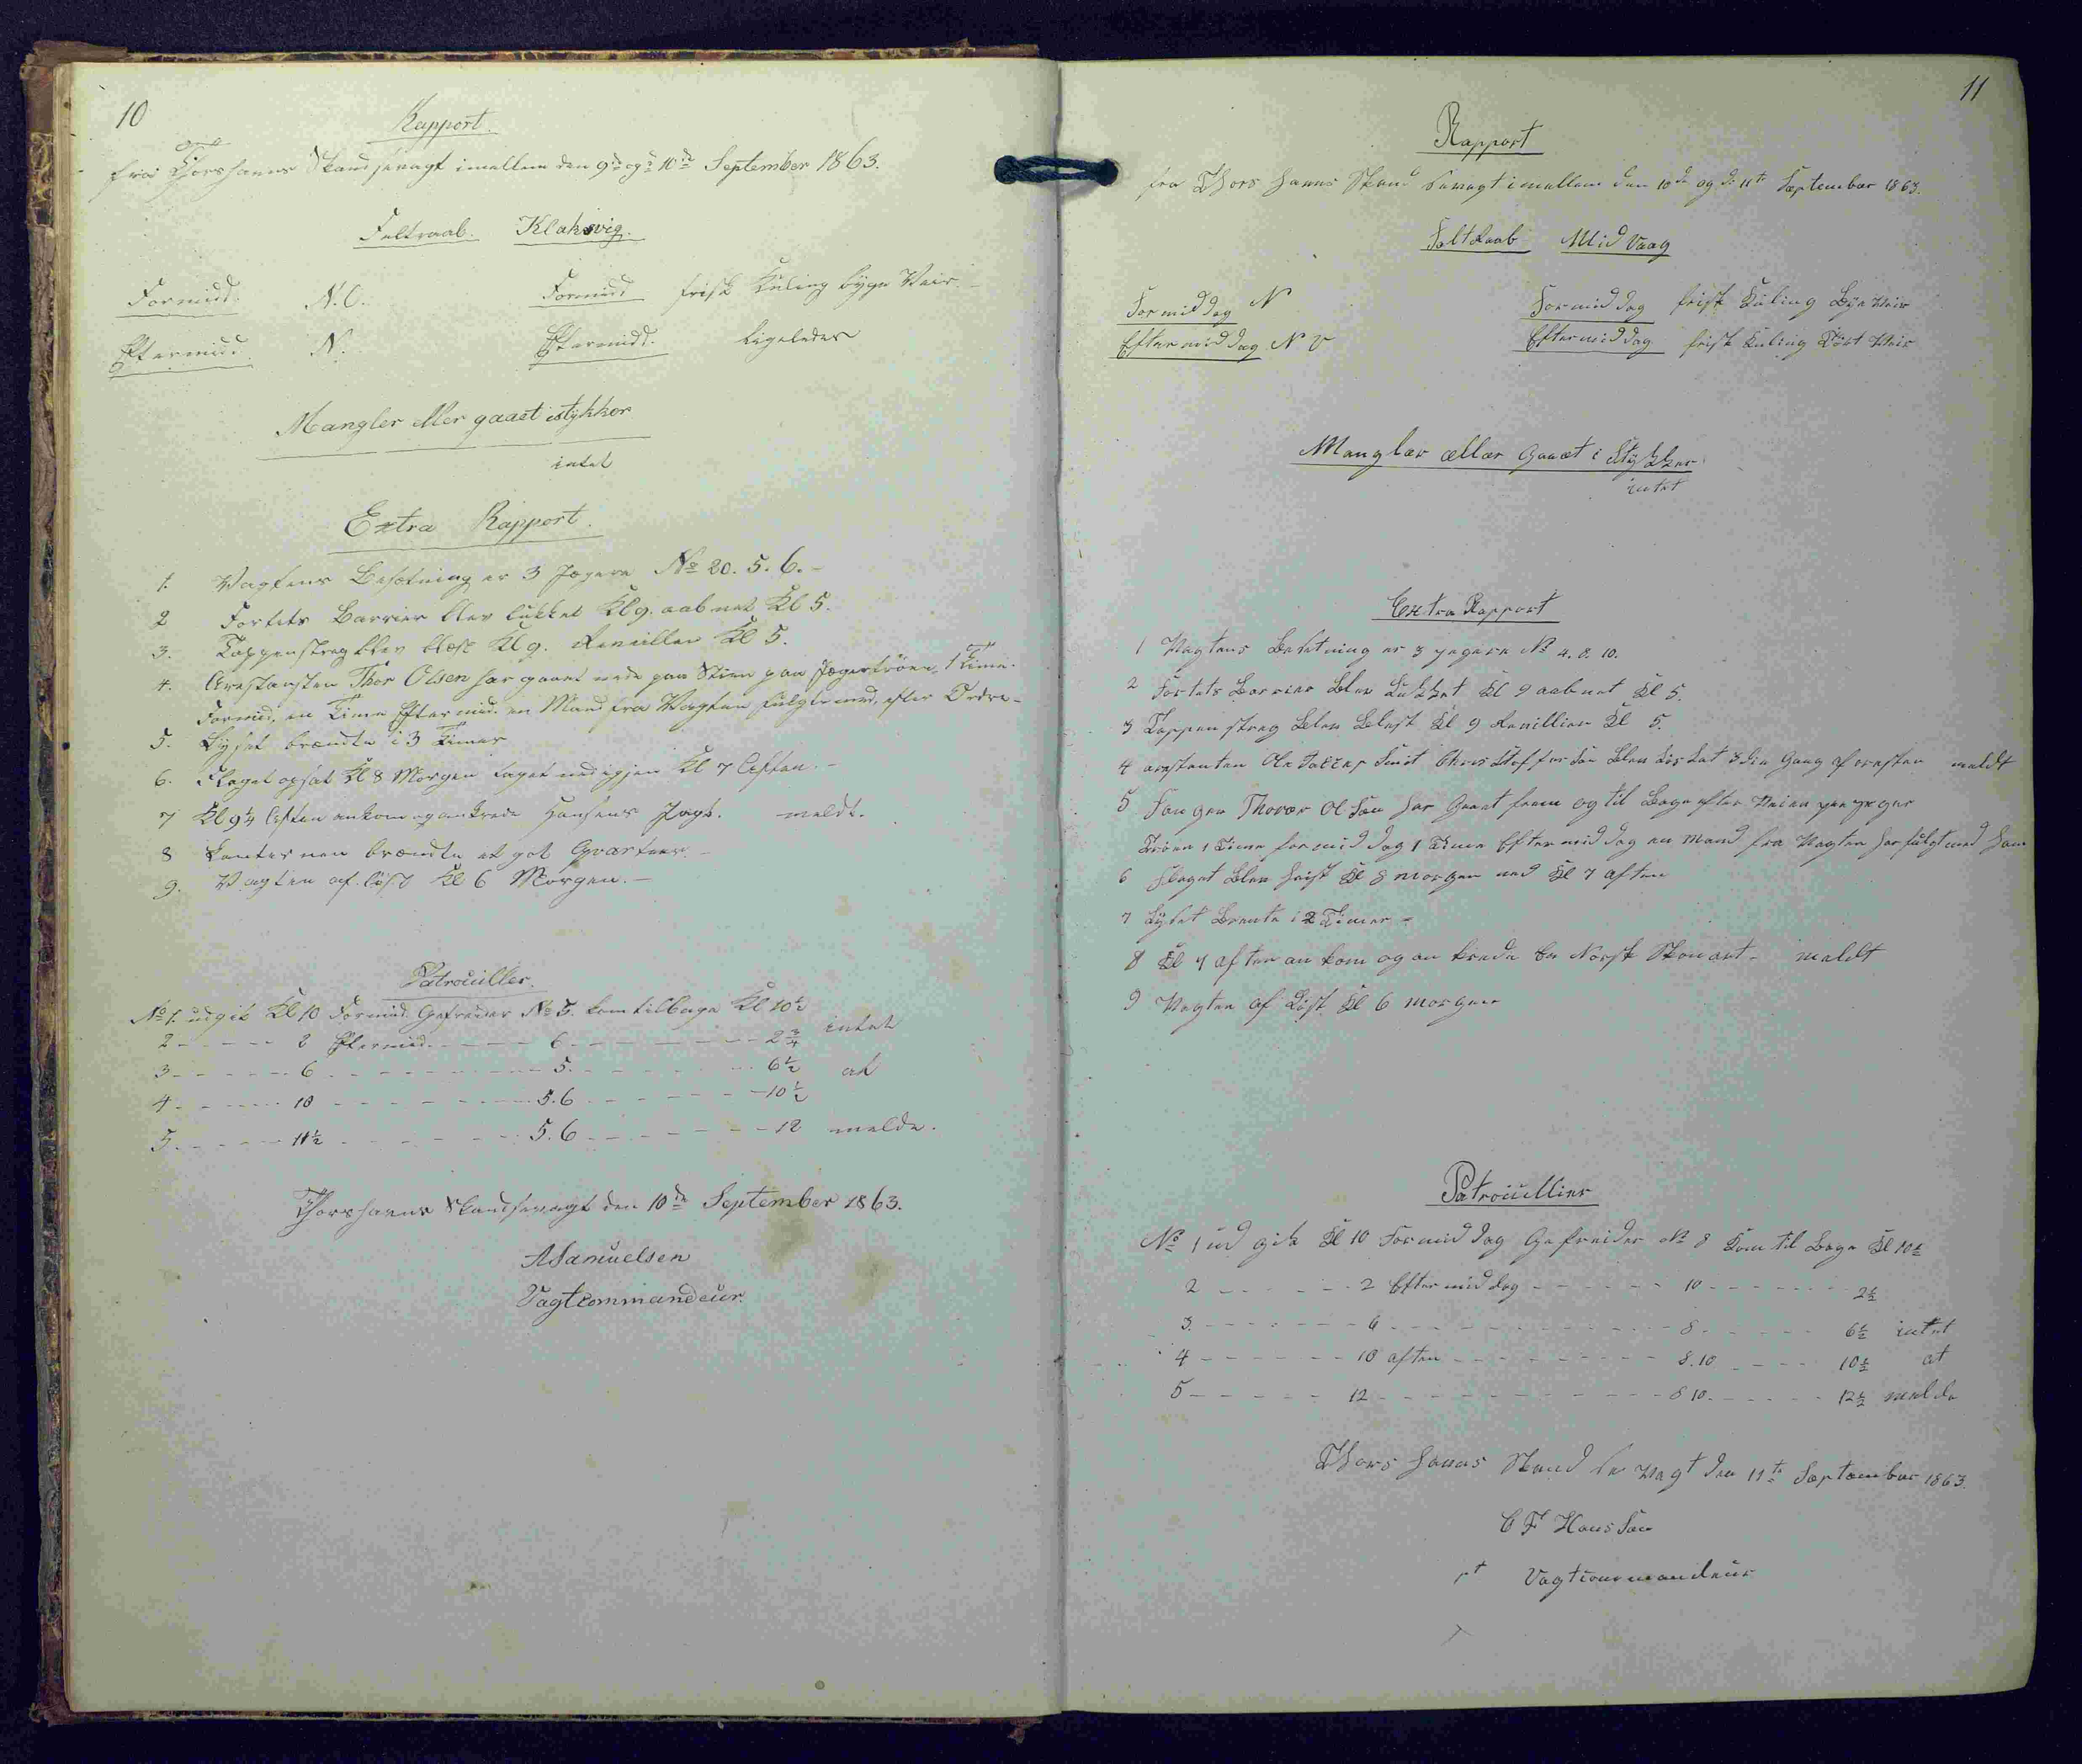 10
Rapport.
fra Thorshavns Skandsevagt imellem den 9de og 10de September 1863.
Feltraab. Klaksvig.
Formidd. N.O. Formidd frisk Kuling byge Veir.
Eftermidd. N. Eftermidd. ligeledes
Mangler eller gaaet istykker
intet
Extra Rapport.
1. Vagtens Besætning er 3 Jægere No 20. 5. 6. -
2 Fortets Barrier blev lukket Kl 9. aabnet Kl 5.
3. Tappenstreg blev blæst Kl 9. Reveillen Kl 5.
4. Arrestanten Thor Olsen har gaaet nede paa Stien paa Jægertröen, 1 Time
Formid. en Time Eftermid. en Mand fra Vagten fulgte med, efter Ordre -
5. Lyset brændte i 3 Timer
6. Flaget opsat Kl 8 Morgen taget ned igjen Kl 7 Aften. -
7 Kl 9¼ Aften ankom og ankrede Hansens Jagt. meldt.
8 Lanternen brændte et qot Qvarteer. -
9. Vagten af löst Kl 6 Morgen. -
Patrouiller.
No 1. udgik Kl 10 Formid. Gefreider No 5. kom tilbage Kl 10½
2 - - - - - 2 Eftermid. - - - - - 6 - - - - - - - - 2¾ intet
3 - - - - - 6 - - - - - - - - - - 5. - - - - - - - 6½ at
4 - - - - - 10 - - - - - - - - - 5. 6 - - - - - - - 10½
5. - - - - - 11½ - - - - - - - 5. 6 - - - - - - - 12 melde.
Thorshavns Skandsevagt den 10de September 1863.
A Samuelsen
Vagtcommandeur.
11
Rapport
fra Thors havns Skand sevagt imellem den 10de og de 11te September 1863.
Felt Raab Mid Vaag
Formiddag N Formiddag frisk Kuling Bye Veir
Eftermiddag N V Eftermiddag frisk Kuling Tört Veir
Mangler eller Gaaet i Stykker
intet
Extra Rapport
1 Vagtens Besetning er 3 yegere No 4. 8. 10.
2 Fortets Barrier Blev Lukket Kl 9 aabnet Kl 5.
3 Tappen streg Blev Blest Kl 9 Revillien Kl 5.
4 arestanten Ole Christoffersen Blev 3die Gang meldt
5 Fangen Thover Olsen har Gaaet frem og til Bage efter Veien paa yeger
Tröen 1 Time formiddag 1 Time Eftermiddag en Mand fra Vagten har fulgt med ham
6 Flaget Blev heist Kl 8 morgen ned Kl 7 aften
7 Lyset Brente i 2 Timer -
8 Kl 7 aften an kom og an krede En Norsk Skonert - meldt
9 Vagten af Löst Kl 6 morgen
Patrouillier
No 1 ud gik Kl 10 Formiddag Gefreider No 8 Kom til Bage Kl 10½
2 - - - - - - 2 Eftermiddag - - - - - - 10 - - - - - - 2½
3. - - - - - - 6 - - - - - - - - - - - 8 - - - - - 6½ intet
4 - - - - - - 10 aften - - - - - - - - 8. 10 - - - - 10½ at
5 - - - - - - 12 - - - - - - - - - - - 8 10. - - - - - 12½ melde
Thors havns Skand se Vagt den 11te September 1863.
C F Hanssen
pt Vagtcommandeur